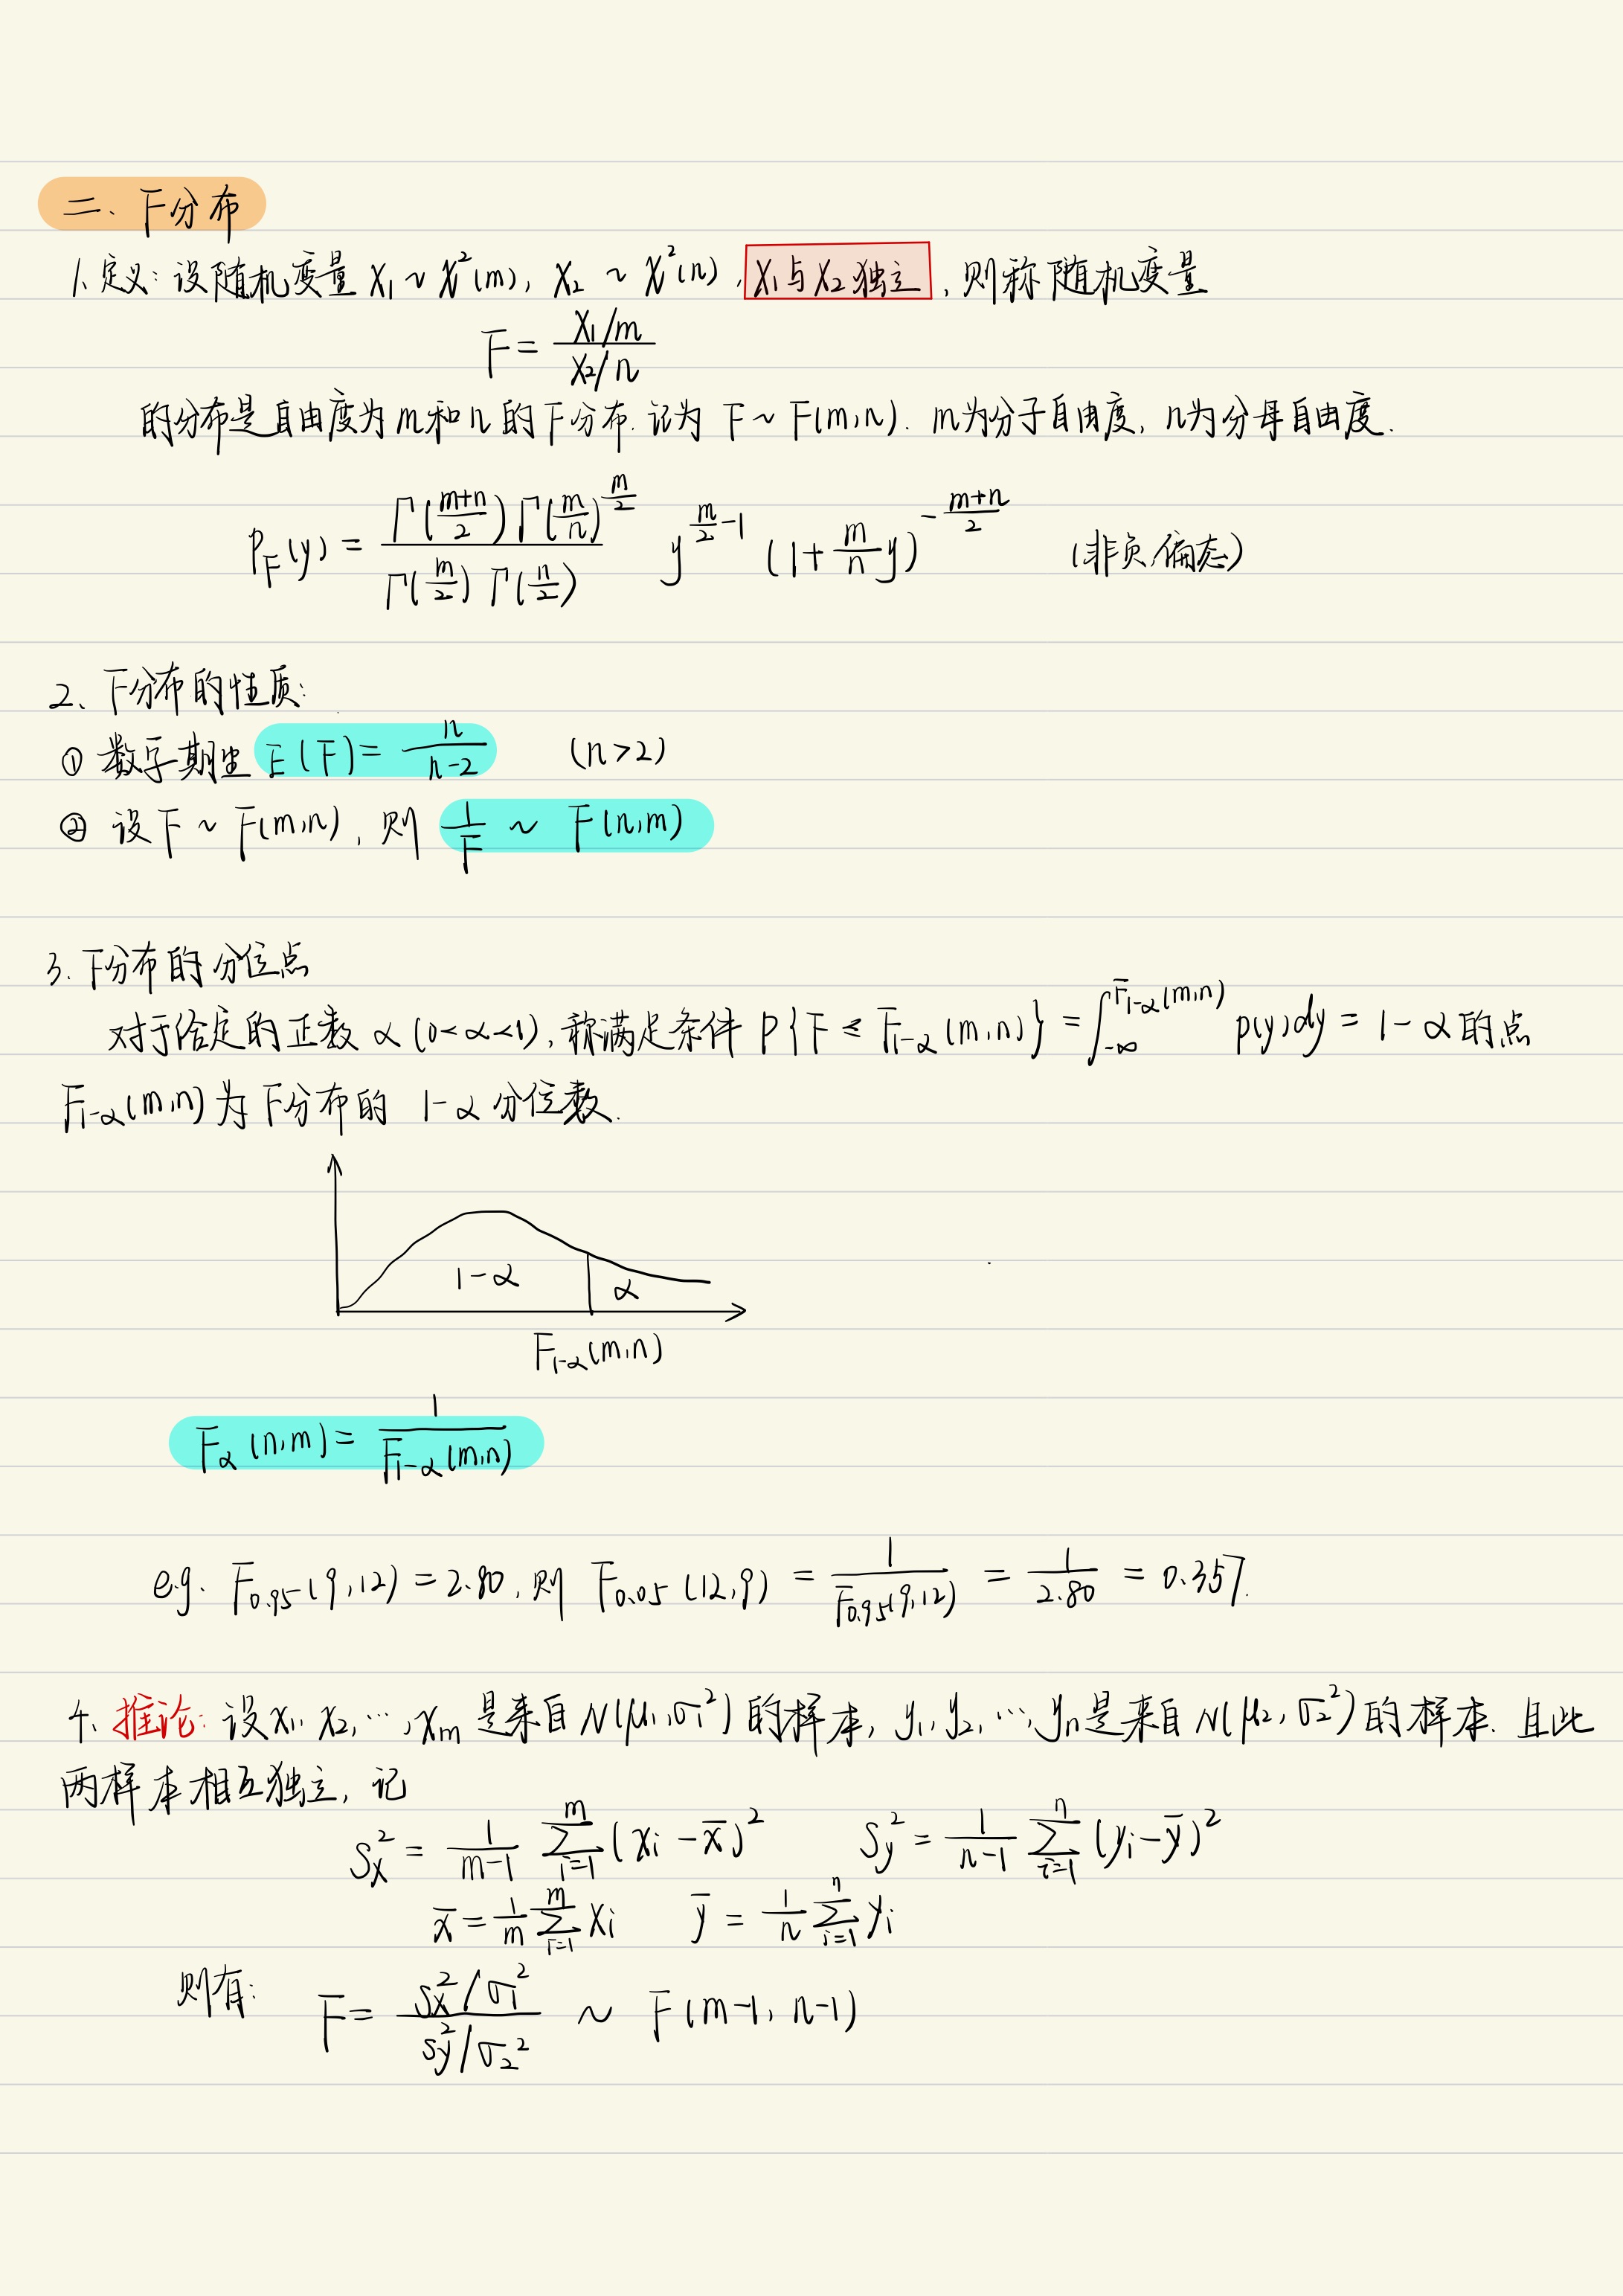 二、F分布
1、定义：设随机变量 X₁ ~ χ²(m), X₂ ~ χ²(n), X₁与X₂独立, 则称随机变量
F = (X₁/m)/(X₂/n)
的分布是自由度为m和n的F分布. 记为 F ~ F(m,n). m为分子自由度, n为分母自由度.
p_F(y) = [Γ((m+n)/2) Γ(m/n)^(m/2)] / [Γ(m/2) Γ(n/2)] y^(m/2 -1) (1+ (m/n)y)^(-(m+n)/2) (非负,偏态)
2、F分布的性质：
① 数学期望 E(F) = n/(n-2) (n>2)
② 设F ~ F(m,n), 则 1/F ~ F(n,m)
3. F分布的分位点
对于给定的正数 α (0<α<1), 称满足条件 P{F ≤ F_{1-α}(m,n)} = ∫_{-∞}^{F_{1-α}(m,n)} p(y)dy = 1-α 的点
F_{1-α}(m,n) 为F分布的 1-α 分位数.
1-α α
F_{1-α}(m,n)
F_α(n,m) = 1/F_{1-α}(m,n)
e.g. F_{0.95}(9,12) = 2.80, 则 F_{0.05}(12,9) = 1/F_{0.95}(9,12) = 1/2.80 = 0.357.
4、推论：设x₁, x₂, ⋯, x_m 是来自 N(μ₁,σ₁²) 的样本, y₁, y₂, ⋯, y_n 是来自 N(μ₂,σ₂²) 的样本. 且此
两样本相互独立, 记
S_x² = 1/(m-1) ∑_{i=1}^{m} (x_i - x̄)² S_y² = 1/(n-1) ∑_{i=1}^{n} (y_i - ȳ)²
x̄ = 1/m ∑_{i=1}^{m} x_i ȳ = 1/n ∑_{i=1}^{n} y_i
则有: F = (S_x²/σ₁²)/(S_y²/σ₂²) ~ F(m-1, n-1)